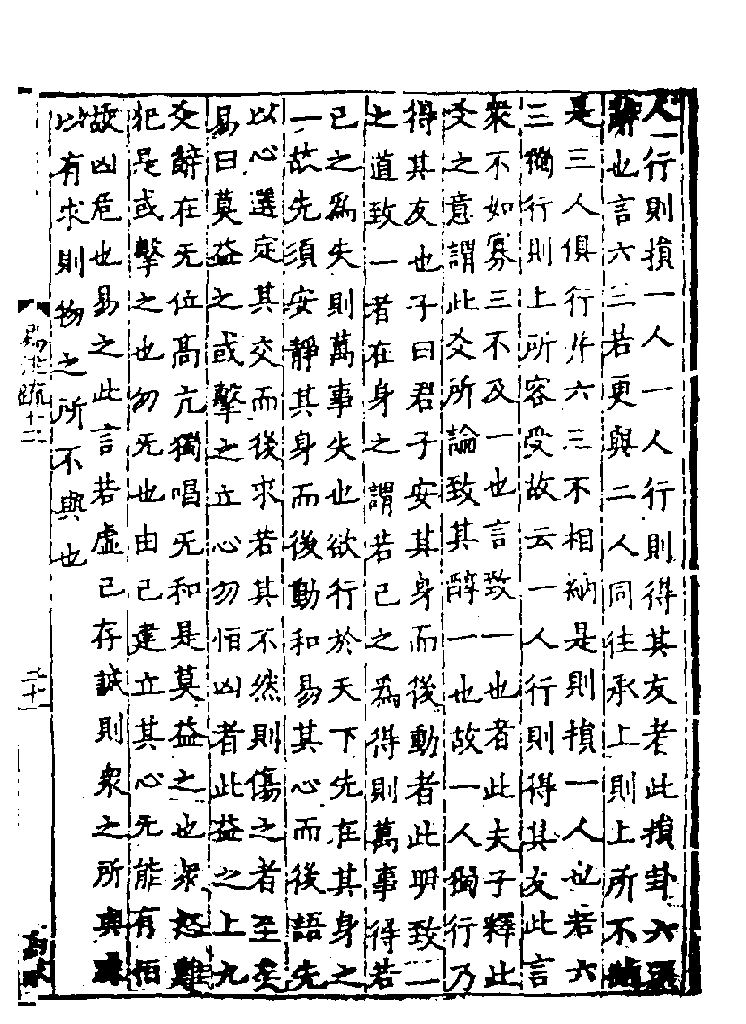 人一行則損一人一人行則得其友者此損卦六三
辭也言六三若更與二人同往承上則上所不納
是三人俱行并六三不相納是則損一人也若六
三獨行則上所容受故云一人行則得其友此言
衆不如寡三不及一也言致一也者此夫子釋此
爻之意謂此爻所論致其醇一也故一人獨行乃
得其友也子曰君子安其身而後動者此明致一
之道致一者在身之謂若己之為得則萬事得若
己之爲失則萬事失也欲行於天下先在其身之
一故先須安靜其身而後動和易其心而後語先
以心選定其交而後求若其不然則傷之者至矣
易曰莫益之或擊之立心勿恒凶者此益之上九
爻辭在无位高亢獨唱无和是莫益之也衆怒難
犯是或擊之也勿无也由己建立其心无能有恒
故凶危也易之此言若虛己存誠則衆之所與躁
以有求則物之所不與也
易注疏十二
二十一